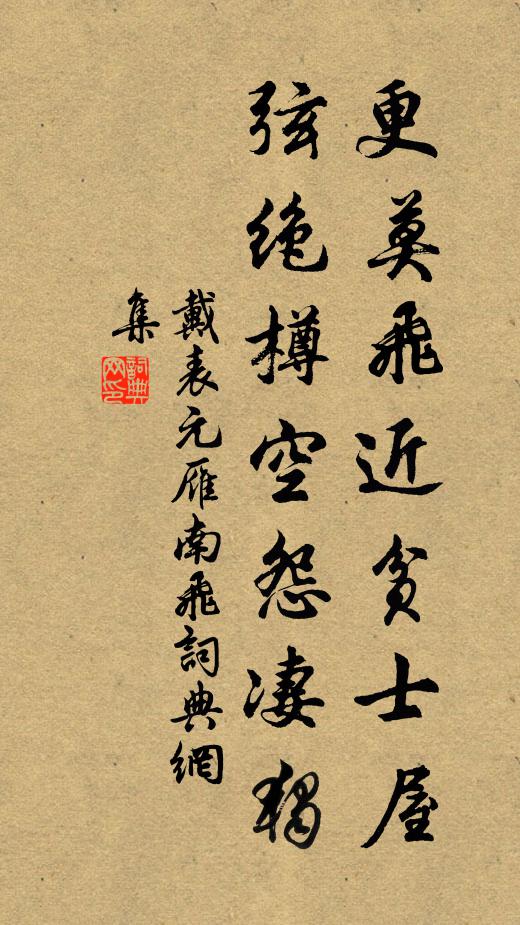 更莫飛近貧士屋
弦絶樽空怨凄獨
戴表元雁南飛詞典網
集
詞典網印